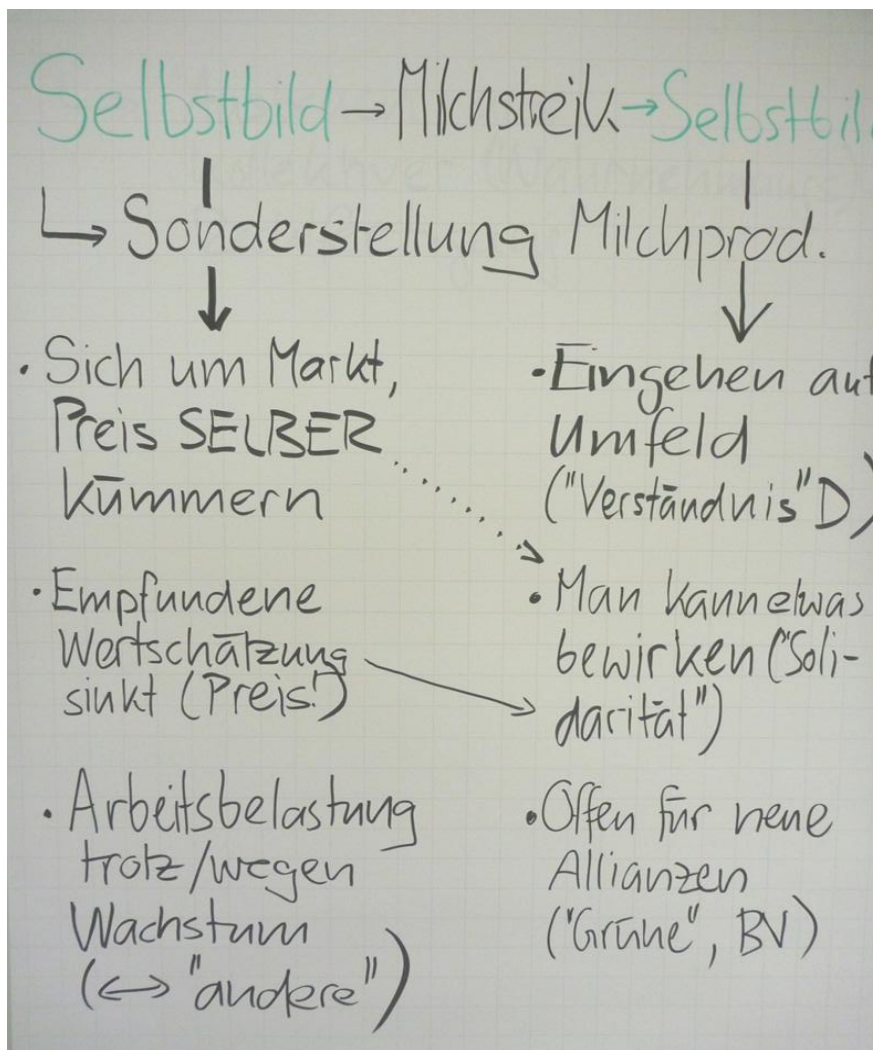 Selbstbild → Milchstreik → Selbstbil
↳ Sonderstellung Milchprod.
· Sich um Markt,
Preis SELBER
kümmern
· Empfundene
Wertschätzung
sinkt (Preis!)
· Arbeitsbelastung
trotz/wegen
Wachstum
(↔ "andere")
· Eingehen auf
Umfeld
("Verständnis" D)
· Man kann etwas
bewirken ("Soli-
darität")
· Offen für neue
Allianzen
("Grüne", BV)